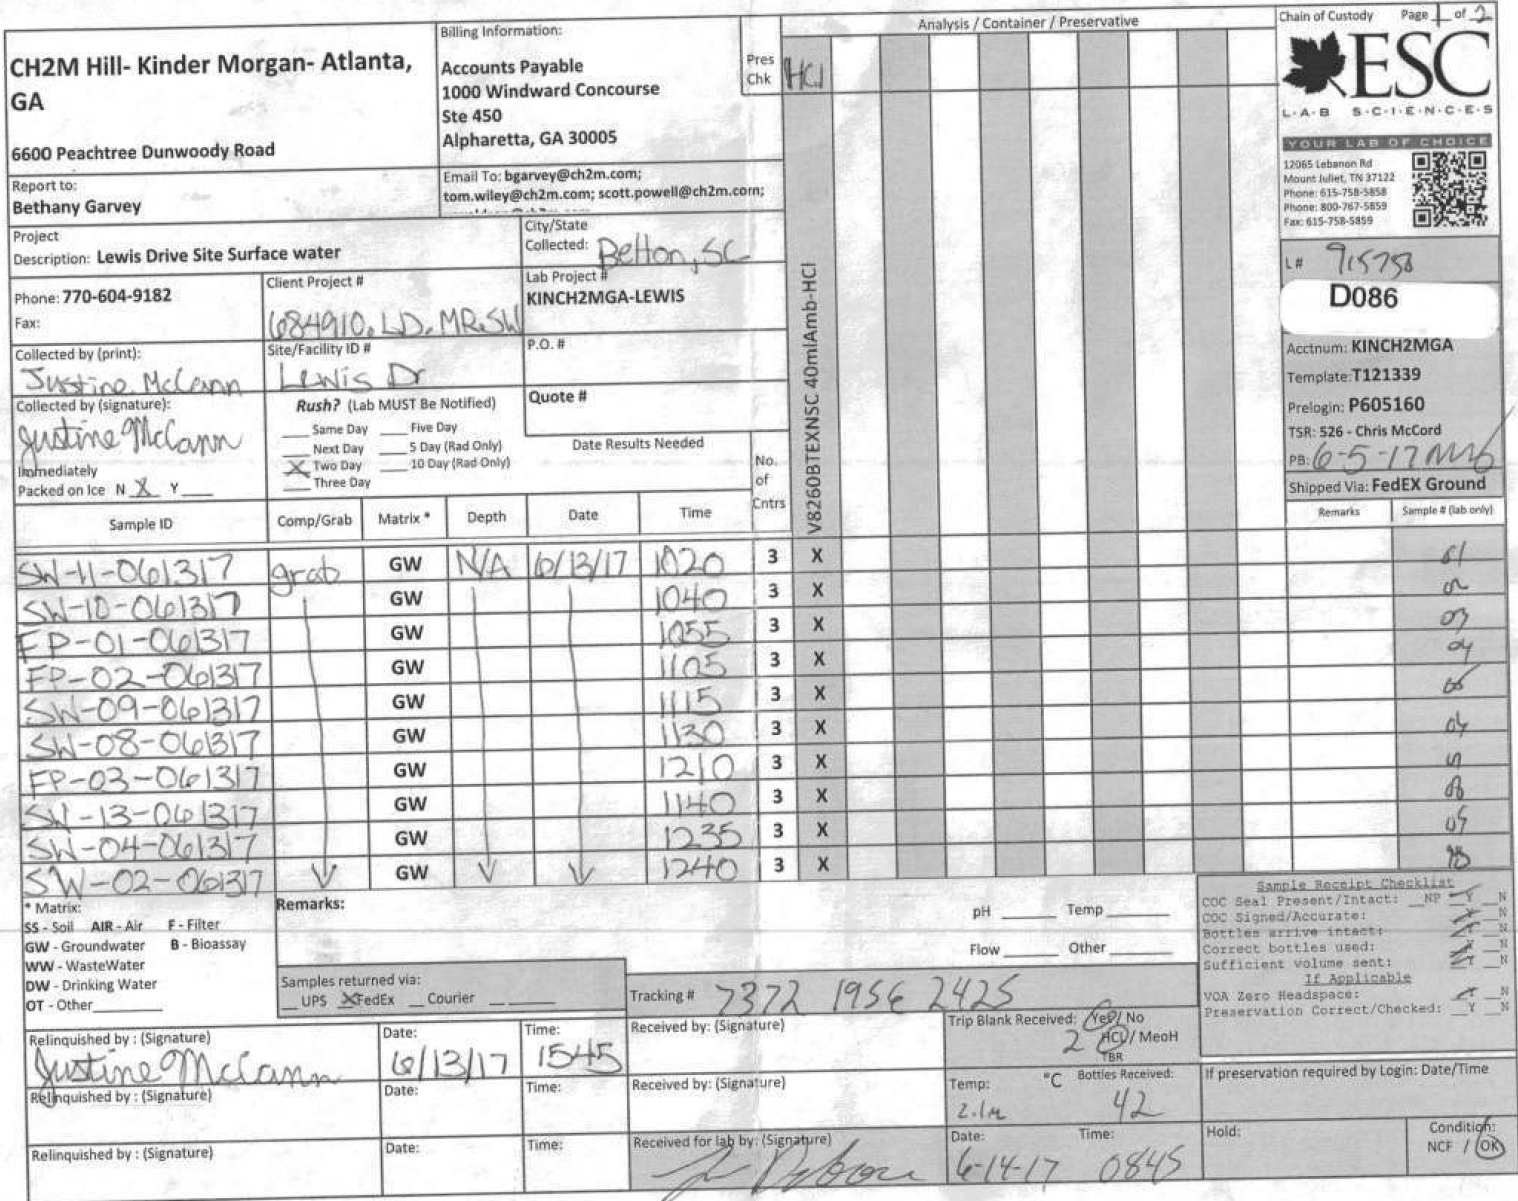 CH2M Hill- Kinder Morgan- Atlanta,
GA
6600 Peachtree Dunwoody Road
Billing Information:
Accounts Payable
1000 Windward Concourse
Ste 450
Alpharetta, GA 30005
Pres
Chk
HCl
Analysis / Container / Preservative
Chain of Custody Page 1 of 2
ESC
L·A·B S·C·I·E·N·C·E·S
YOUR LAB OF CHOICE
12065 Lebanon Rd
Mount Juliet, TN 37122
Phone: 615-758-5858
Phone: 800-767-5859
Fax: 615-758-5859
Report to:
Bethany Garvey
Email To: bgarvey@ch2m.com;
tom.wiley@ch2m.com; scott.powell@ch2m.com;
Project
Description: Lewis Drive Site Surface water
City/State
Collected: Belton, SC
L# 915758
D086
Phone: 770-604-9182
Fax:
Client Project #
684910.LD.MR.SW
Lab Project #
KINCH2MGA-LEWIS
Collected by (print):
Justine McCann
Site/Facility ID #
Lewis Dr
P.O. #
Acctnum: KINCH2MGA
Template: T121339
Prelogin: P605160
TSR: 526 - Chris McCord
PB: 6-5-17
Shipped Via: FedEX Ground
Collected by (signature):
Justine McCann
Rush? (Lab MUST Be Notified)
Same Day Five Day
Next Day 5 Day (Rad Only)
X Two Day 10 Day (Rad Only)
Three Day
Quote #
Date Results Needed
Immediately
Packed on Ice N X Y
V8260BTEXNSC 40mlAmb-HCl
Sample ID Comp/Grab Matrix * Depth Date Time No. of Cntrs Remarks Sample # (lab only)
SW-11-061317 grab GW N/A 6/13/17 1020 3 X 01
SW-10-061317 GW 1040 3 X 02
FP-01-061317 GW 1055 3 X 03
FP-02-061317 GW 1105 3 X 04
SW-09-061317 GW 1115 3 X
SW-08-061317 GW 1130 3 X
FP-03-061317 GW 1210 3 X
SW-13-061317 GW 1140 3 X 08
SW-04-061317 GW 1235 3 X 09
SW-02-061317 GW 1240 3 X 10
* Matrix:
SS - Soil AIR - Air F - Filter
GW - Groundwater B - Bioassay
WW - WasteWater
DW - Drinking Water
OT - Other
Remarks:
pH Temp
Flow Other
Sample Receipt Checklist
COC Seal Present/Intact: NP Y N
COC Signed/Accurate: Y N
Bottles arrive intact: Y N
Correct bottles used: Y N
Sufficient volume sent: Y N
If Applicable
VOA Zero Headspace: Y N
Preservation Correct/Checked: Y N
Samples returned via:
UPS X FedEx Courier
Tracking # 7372 1956 2425
Relinquished by : (Signature)
Justine McCann
Date:
6/13/17
Time:
1545
Received by: (Signature)
Trip Blank Received: Yes / No
2 HCL / MeoH
TBR
Relinquished by : (Signature)
Date:
Time:
Received by: (Signature)
Temp: °C
Bottles Received:
42
If preservation required by Login: Date/Time
Relinquished by : (Signature)
Date:
Time:
Received for lab by: (Signature)
Date:
6-14-17
Time:
0845
Hold:
Condition:
NCF / OK